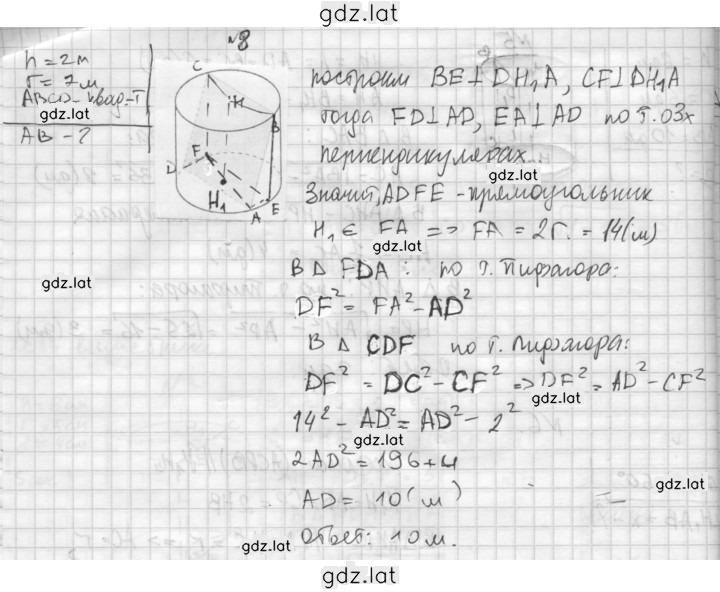 gdz.lat
№8
h = 2м
r = 7м
ABCD - квад-т
gdz.lat
AB - ?
C
H
B
F
D
H₁
A
E
построим BE⊥DH₁A, CF⊥DH₁A
тогда FD⊥AD, EA⊥AD по т. о 3х
перпендикулярах.
Значит, ADFE - прямоугольник
H₁ ∈ FA => FA = 2r = 14(м)
gdz.lat
В Δ FDA: по т. Пифагора:
gdz.lat
DF² = FA² - AD²
В Δ CDF по т. Пифагора:
DF² = DC² - CF² => DF² = AD² - CF²
gdz.lat
14² - AD² = AD² - 2²
gdz.lat
2AD² = 196 + 4
AD = 10(м)
Ответ: 10м.
gdz.lat
gdz.lat
gdz.lat